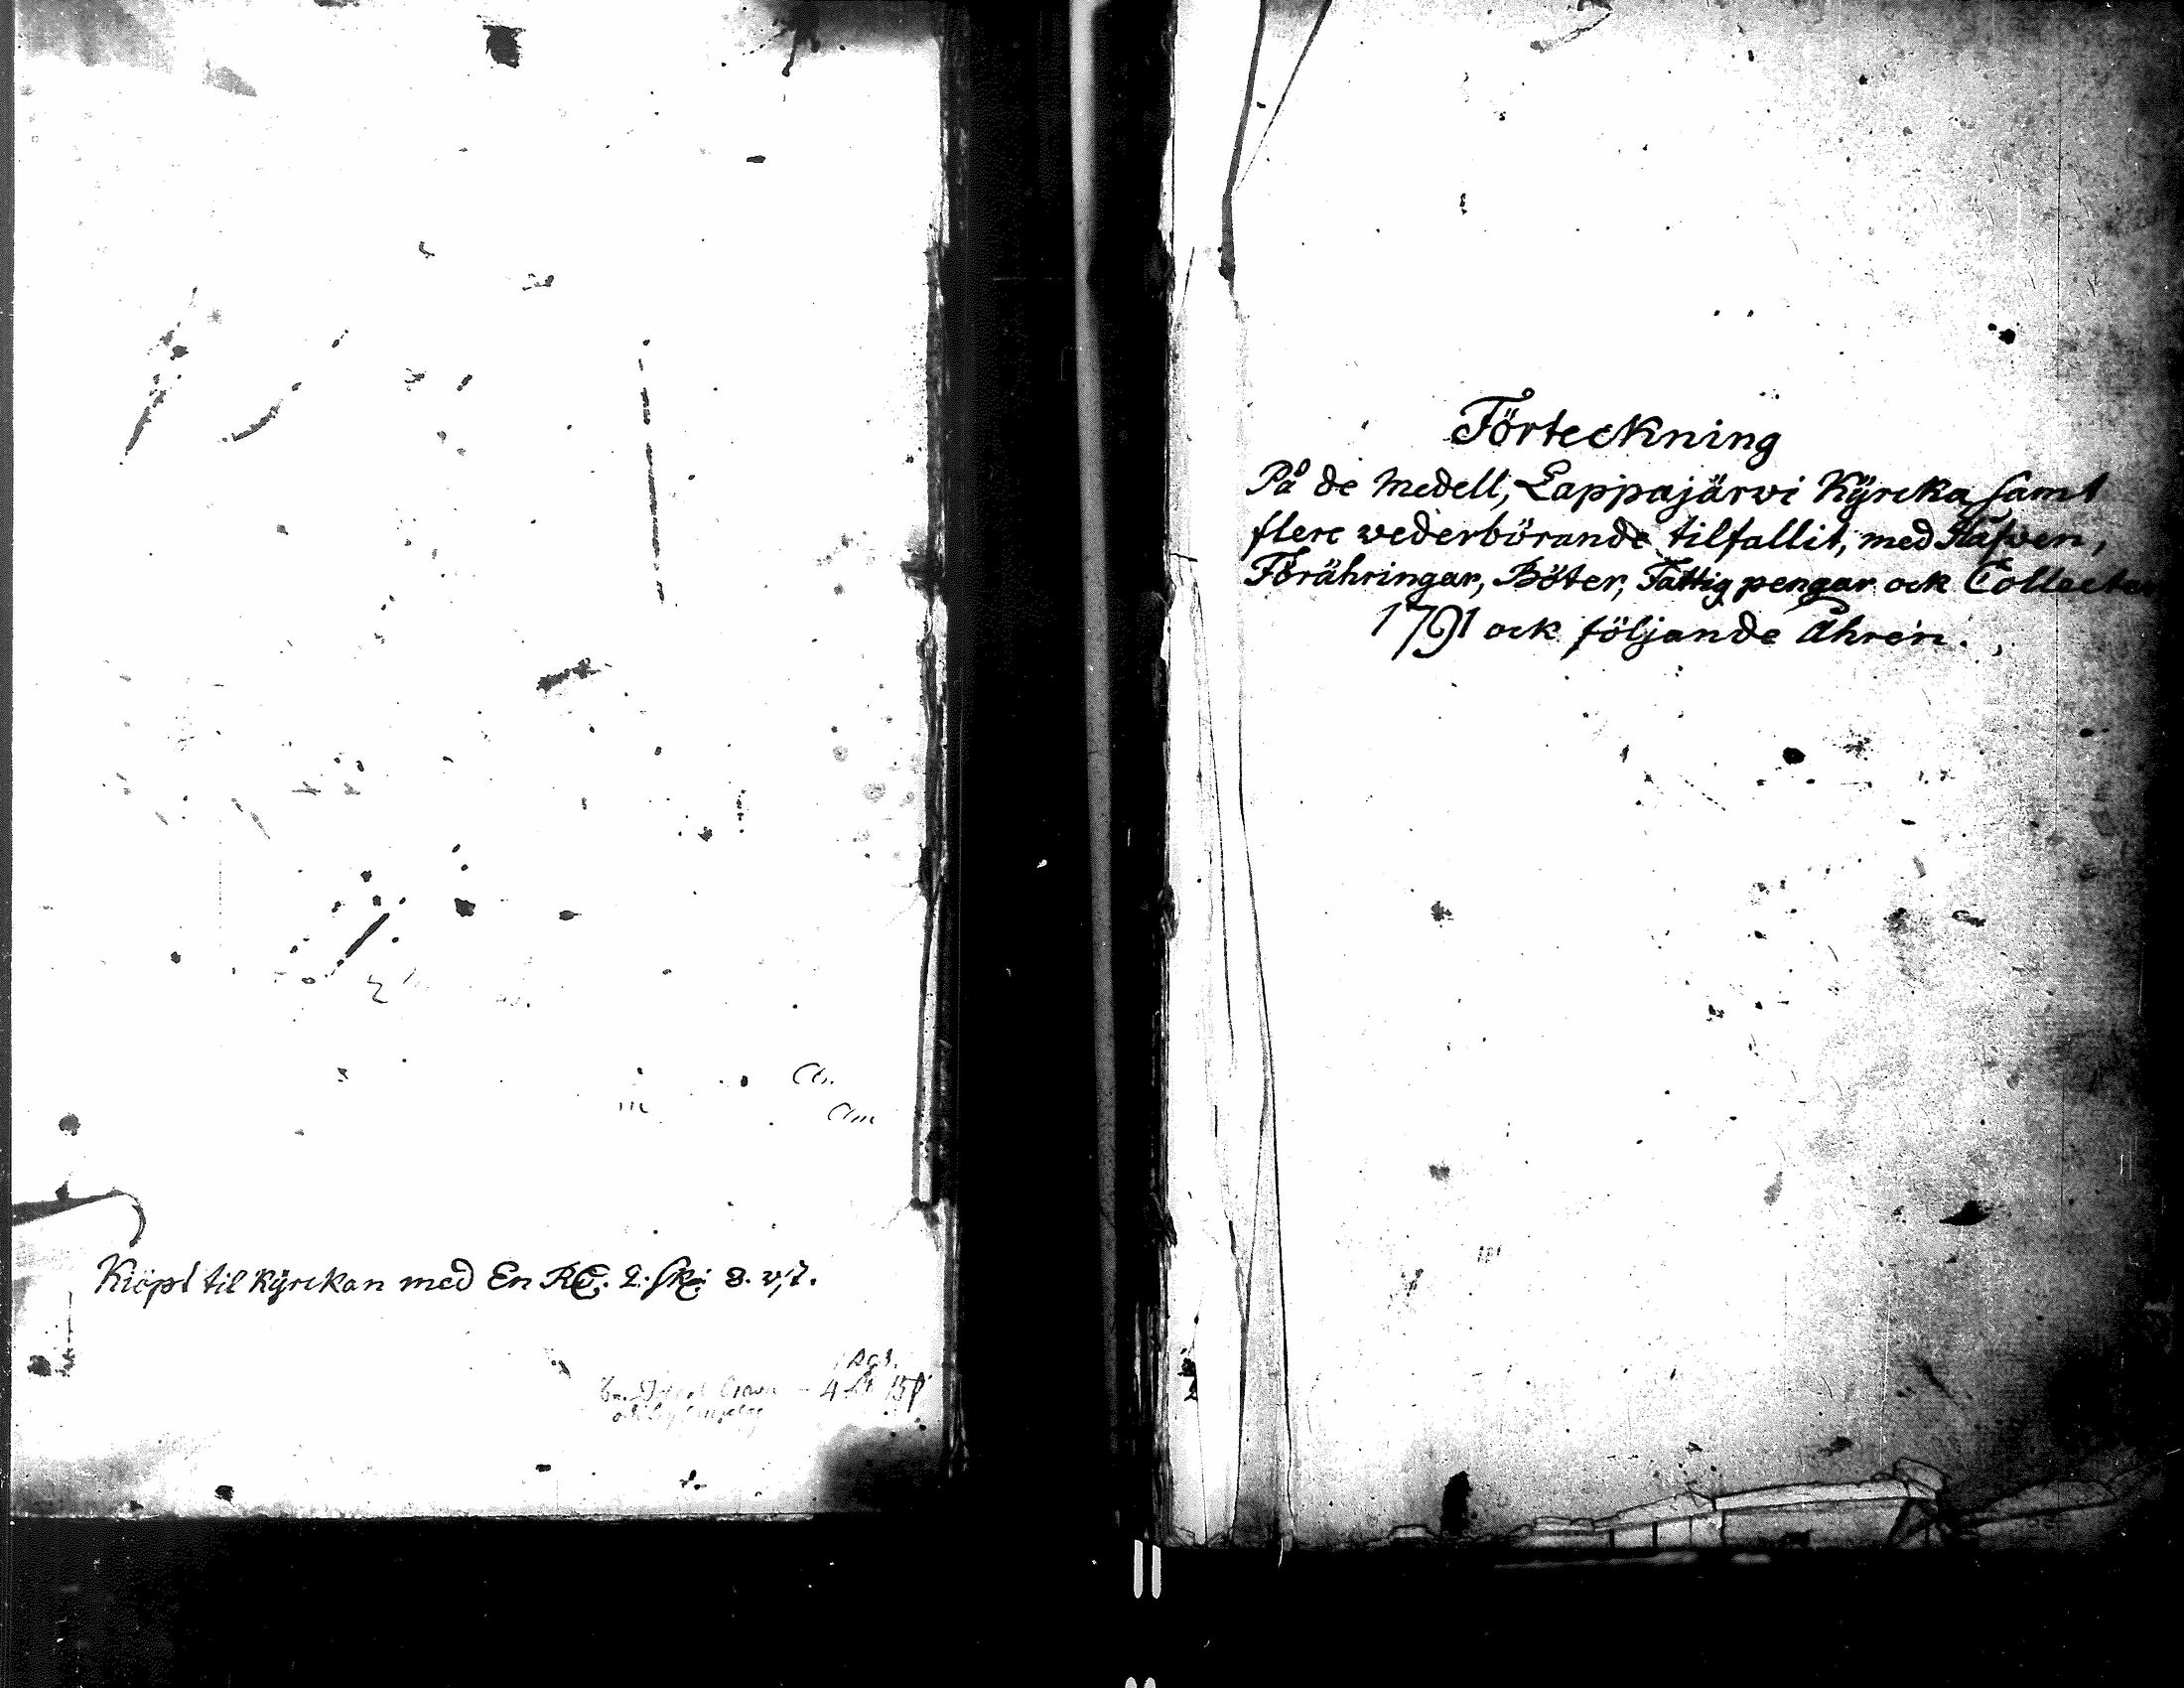 Kiöpt til Kÿrckan med En RD. 2. sk: 8. r/.
4 15
Förteckning
På de Medell, Lappajärwi Kÿrcka samt
flere wederbörande tilfallit, med Håfwen,
Förähringar, Böter, Fattig pengar ock Collecter
1791 ock följande Åhren.